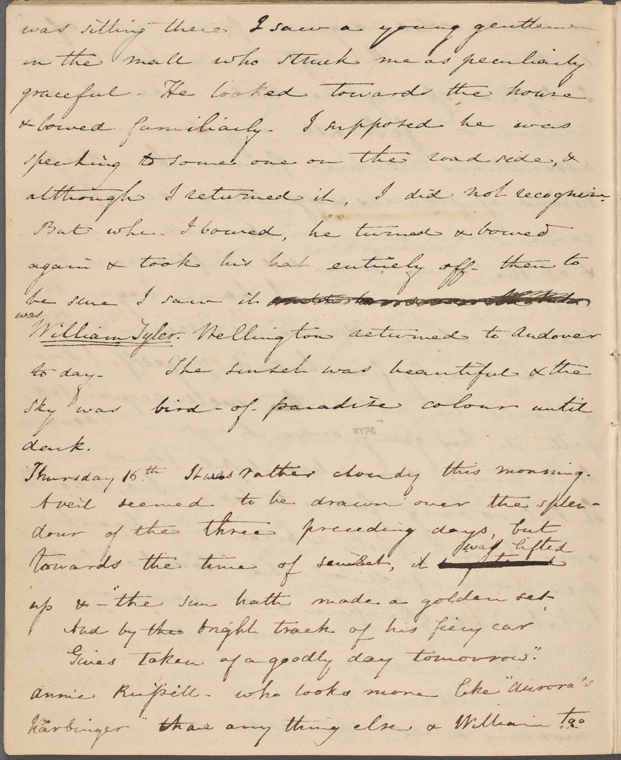 was sitting there. I saw a young gentleman
in the mall who struck me as peculiarly
graceful. He looked towards the house
& bowed familiarly. I supposed he was
speaking to some one on the road side, &
although I returned it, I did not recognize.
But when I bowed, he turned & bowed
again & took his hat entirely off - then to
be sure I saw it
was
William Tyler. Wellington returned to Andover
to day. The sunset was beautiful & the
sky was bird-of-paradise colour until
dark.
Thursday 16th It was rather cloudy this morning.
A veil seemed to be drawn over the splen-
dour of the three preceding days, but
was lifted
towards the time of sunset, it
up & - "the sun hath made a golden set
And by the bright track of his fiery car
Gives token of a goodly day tomorrow".
Annie Russell - who looks more like "Aurora's
harbinger" than any thing else & William
NYPL